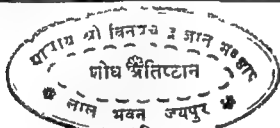 श्री विनयचन्द्र ज्ञान भण्डार
शोध प्रतिष्ठान
लाल भवन जयपुर